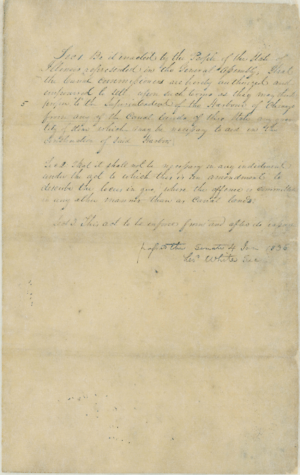 Sec 1 Be it enacted by the People of the State of
Illinois represented in the General Assembly, That
the Canal Commissioners are hereby authorized and
empowered to sell upon such terms as they may think
5 proper to the Superintendent of the Harbour of Chicago
from any of the Canal lands of this State any quan
tity of Stone which may be necessary to aid in the
construction of said Harbor
Sec 2 And it shall not be necessary in any indictment
under the act to which this is an amendment to
describe the locus in quo where the offence is committed
in any other manner than as Canal lands
Sec 3 This act to be in force from and after its passage
Senate Jan 1836
Leo. White Sec